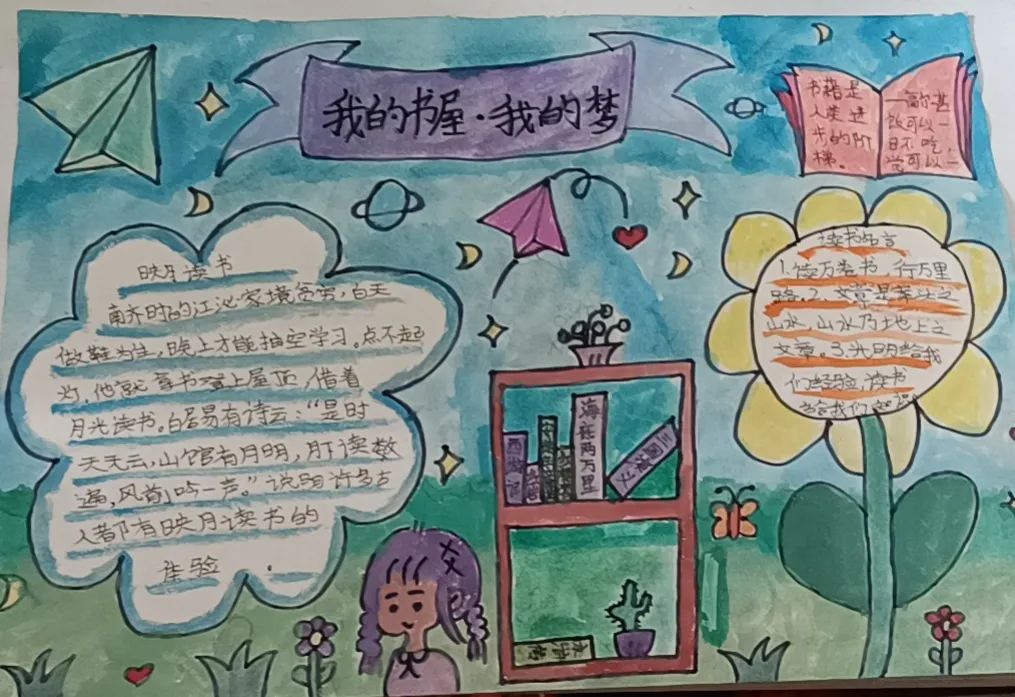 我的书屋·我的梦
书籍是
人类进
步的阶
梯。
饭可以一
日不吃,
觉可以一
映月读书
南齐时的江泌家境贫穷,白天
做鞋为生,晚上才能抽空学习。点不起
灯,他就拿书登上屋顶,借着
月光读书。白居易有诗云:“是时
天无云,山馆有月明,月下读数
遍,风前吟一声。”说明许多古
人都有映月读书的
体验
读书名言
1.读万卷书,行万里
路。2.文章是案头之
山水,山水乃地上之
文章。3.光明给我
们经验,读书
给我们知识
西游记
海底两万里
三国演义
水浒传